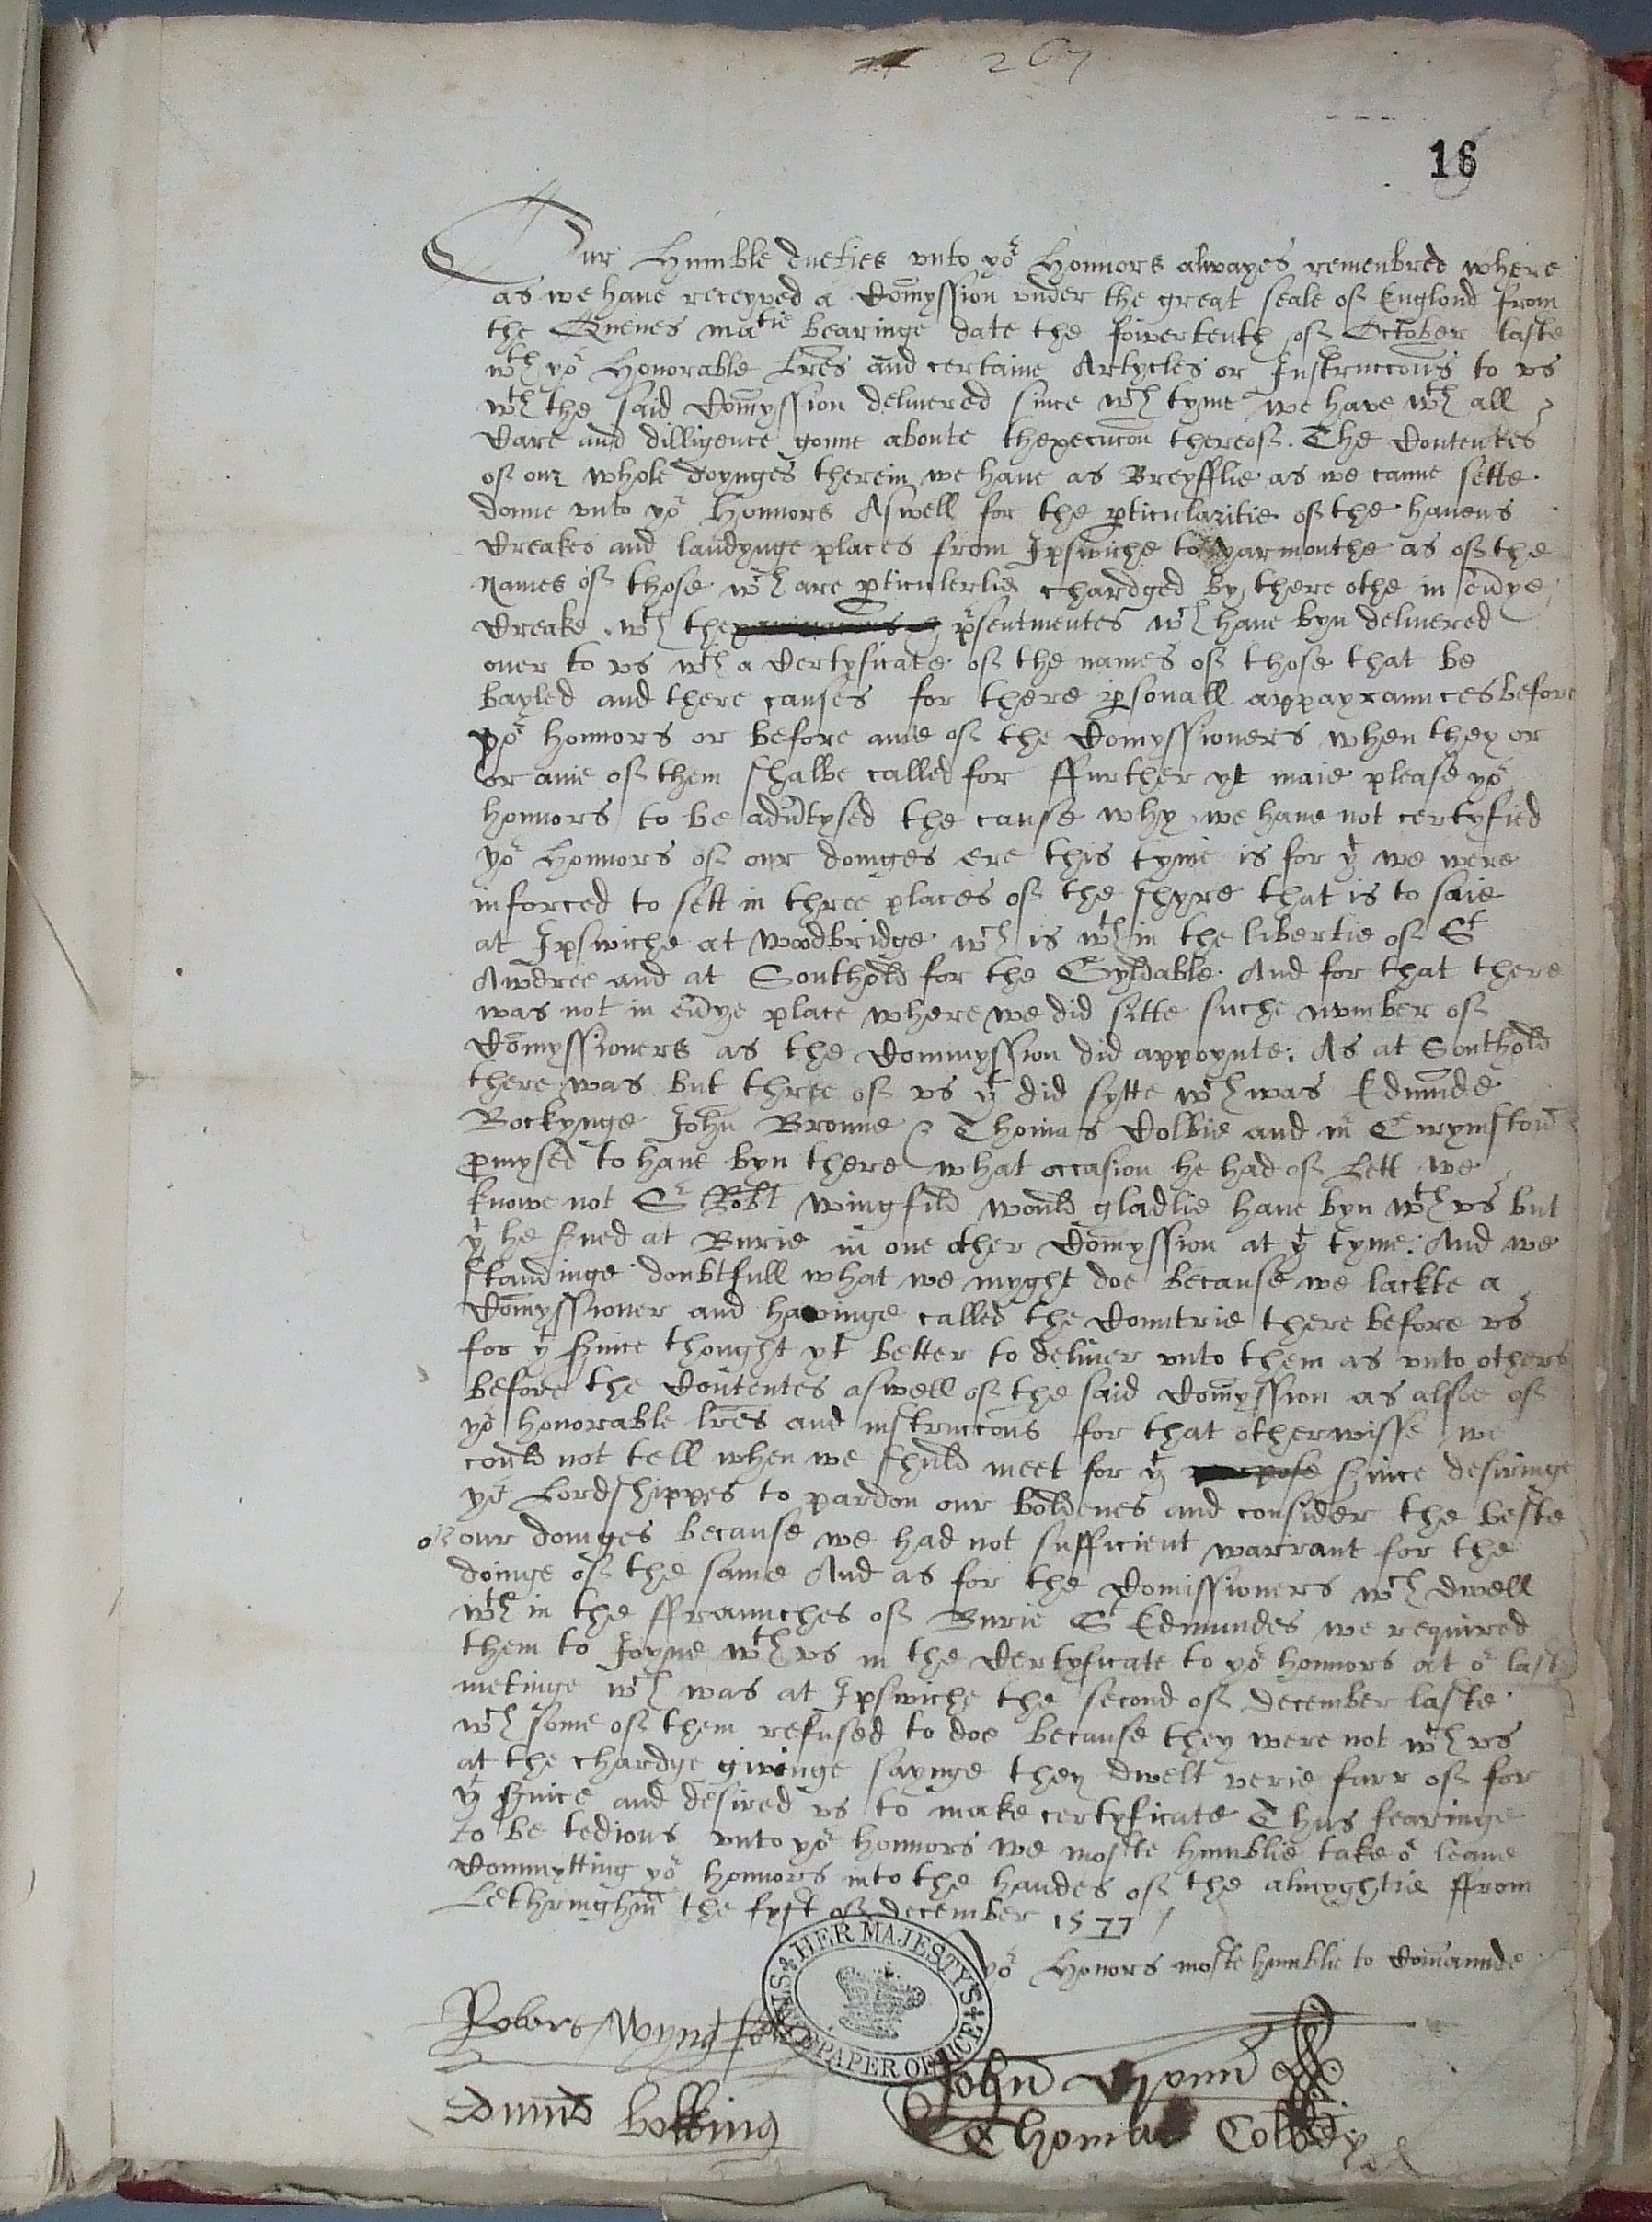 267
16
Our Humble dueties vnto yor Honnors alwayes remenbred where
as we haue receyved a Comyssion vnder the great seale of Englond from
the Quenes matie bearinge date the fowertenth of October laste
wth yor Honorable Lres and certaine Artycles or Instruccons to vs
wth the said Comyssion deliuered since wch tyme we haue wth all
Care and dilligence gonne aboute thexecucon thereof. The Contentes
of our whole doynges therein we haue as Breyfflie as we canne sette
donne vnto yor Honnors Aswell for the pticularitie of the havens
Creakes and landynge places from Ipswiche to yarmouthe as of the
Names of those wch are pticulerlie chardged by there othe in euye
Creake wth the psentmentes wch haue byn deliuered
ouer to vs wth a Certyficate of the names of those that be
bayled and there causes for there psonall appayraunces before
yor honnors or before anie of the Comyssioners when they or
or anie of them shalbe called for ffurther yt maie please yor
honnors to be adutysed the cause why we haue not certyfied
yor Honnors of our doinges ere this tyme is for yt we were
inforced to sett in three places of the shyre that is to saie
at Ipswiche at Woodbridge wch is wth in the libertie of St
Awdree and at Southold for the Gyldable. And for that there
was not in euye place where we did sitte suche nvmber of
Comyssioners as the Commyssion did appoynte. As at Southold
there was but three of vs yt did sytte wch was Edmunde
Bockynge John Bronne & Thomas Colbie and mr Grymston
pmysed to haue byn there what occasion he had of Lett we
knowe not Sr Robt Wingfild would gladlie haue byn wth vs but
yt he sued at Burie in one other Comyssion at yt tyme. And we
standinge doubtfull what we myght doe because we lackte a
Comyssioner and havinge called the Countrie there before vs
for yt suice thought yt better to deliuer vnto them as vnto others
before the Contentes aswell of the said Comyssion as alsoe of
yor honorable lres and instruccons for that otherwisse we
could not tell when we shuld meet for yt purpose suice desiringe
yor Lordshippes to pardon our boldenes and consider the beste
of our doinges because we had not sufficient warrant for the
doinge of the same And as for the Comissioners wch dwell
wth in the ffraunches of Burie St Edmundes we required
them to Joyne wth vs in the Certyficate to yor honnors at or last
metinge wch was at Ipswiche the second of december laste
wch some of them refused to doe because they were not wth vs
at the chardge givinge saynge they dwelt verie farr of for
yt suice and desired vs to make certyficate Thus fearinge
to be tedious vnto yor honnors we moste humblie take or leaue
Commytting yor honnors into the handes of the almyghtie ffrom
Lethringhm the fyst of december 1577
yor Honors moste humblie to Comaunde
Robert Wyngfeld
HER MAJESTY'S STATE PAPER OFFICE
John
Edmund bokking
Thomas Colby